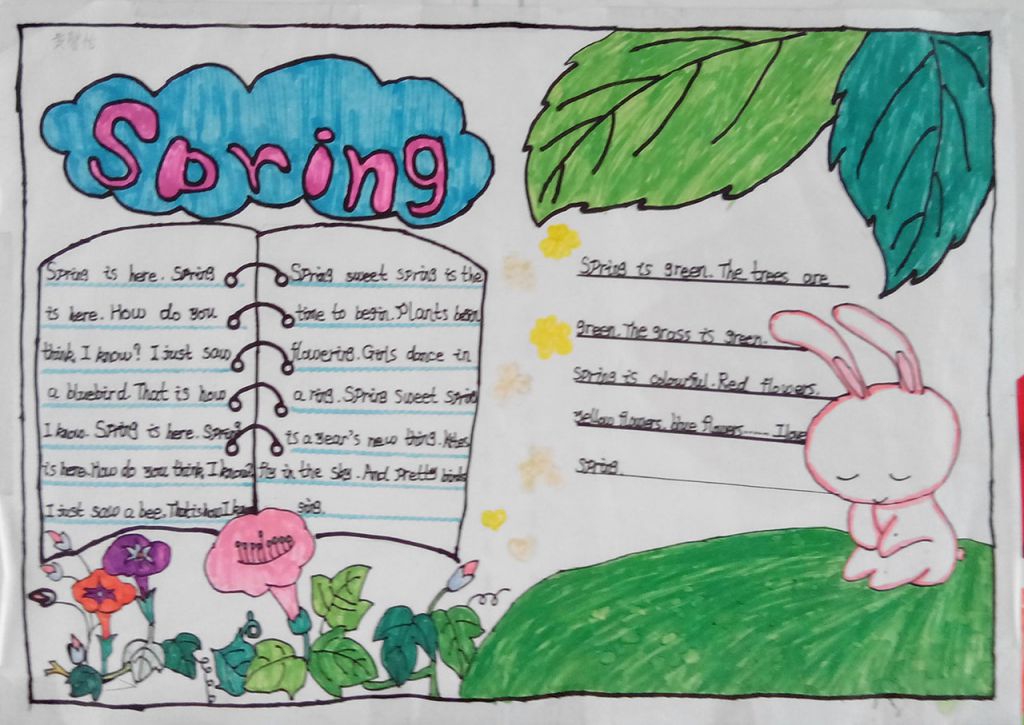 Spring
Spring is here. Spring
is here. How do you
think, I know? I just saw
a bluebird. That is how
I know. Spring is here. Spring
is here. How do you think, I know?
I just saw a bee. That is how I know
Spring sweet spring is the
time to begin. Plants begin
flowering. Girls dance in
a ring. Spring sweet spring
is a year's new thing. Kites
fly in the sky. And pretty birds
sing.
Spring is green. The trees are
green. The grass is green.
Spring is colourful. Red flowers.
Yellow flowers. blue flowers...... I love
spring.